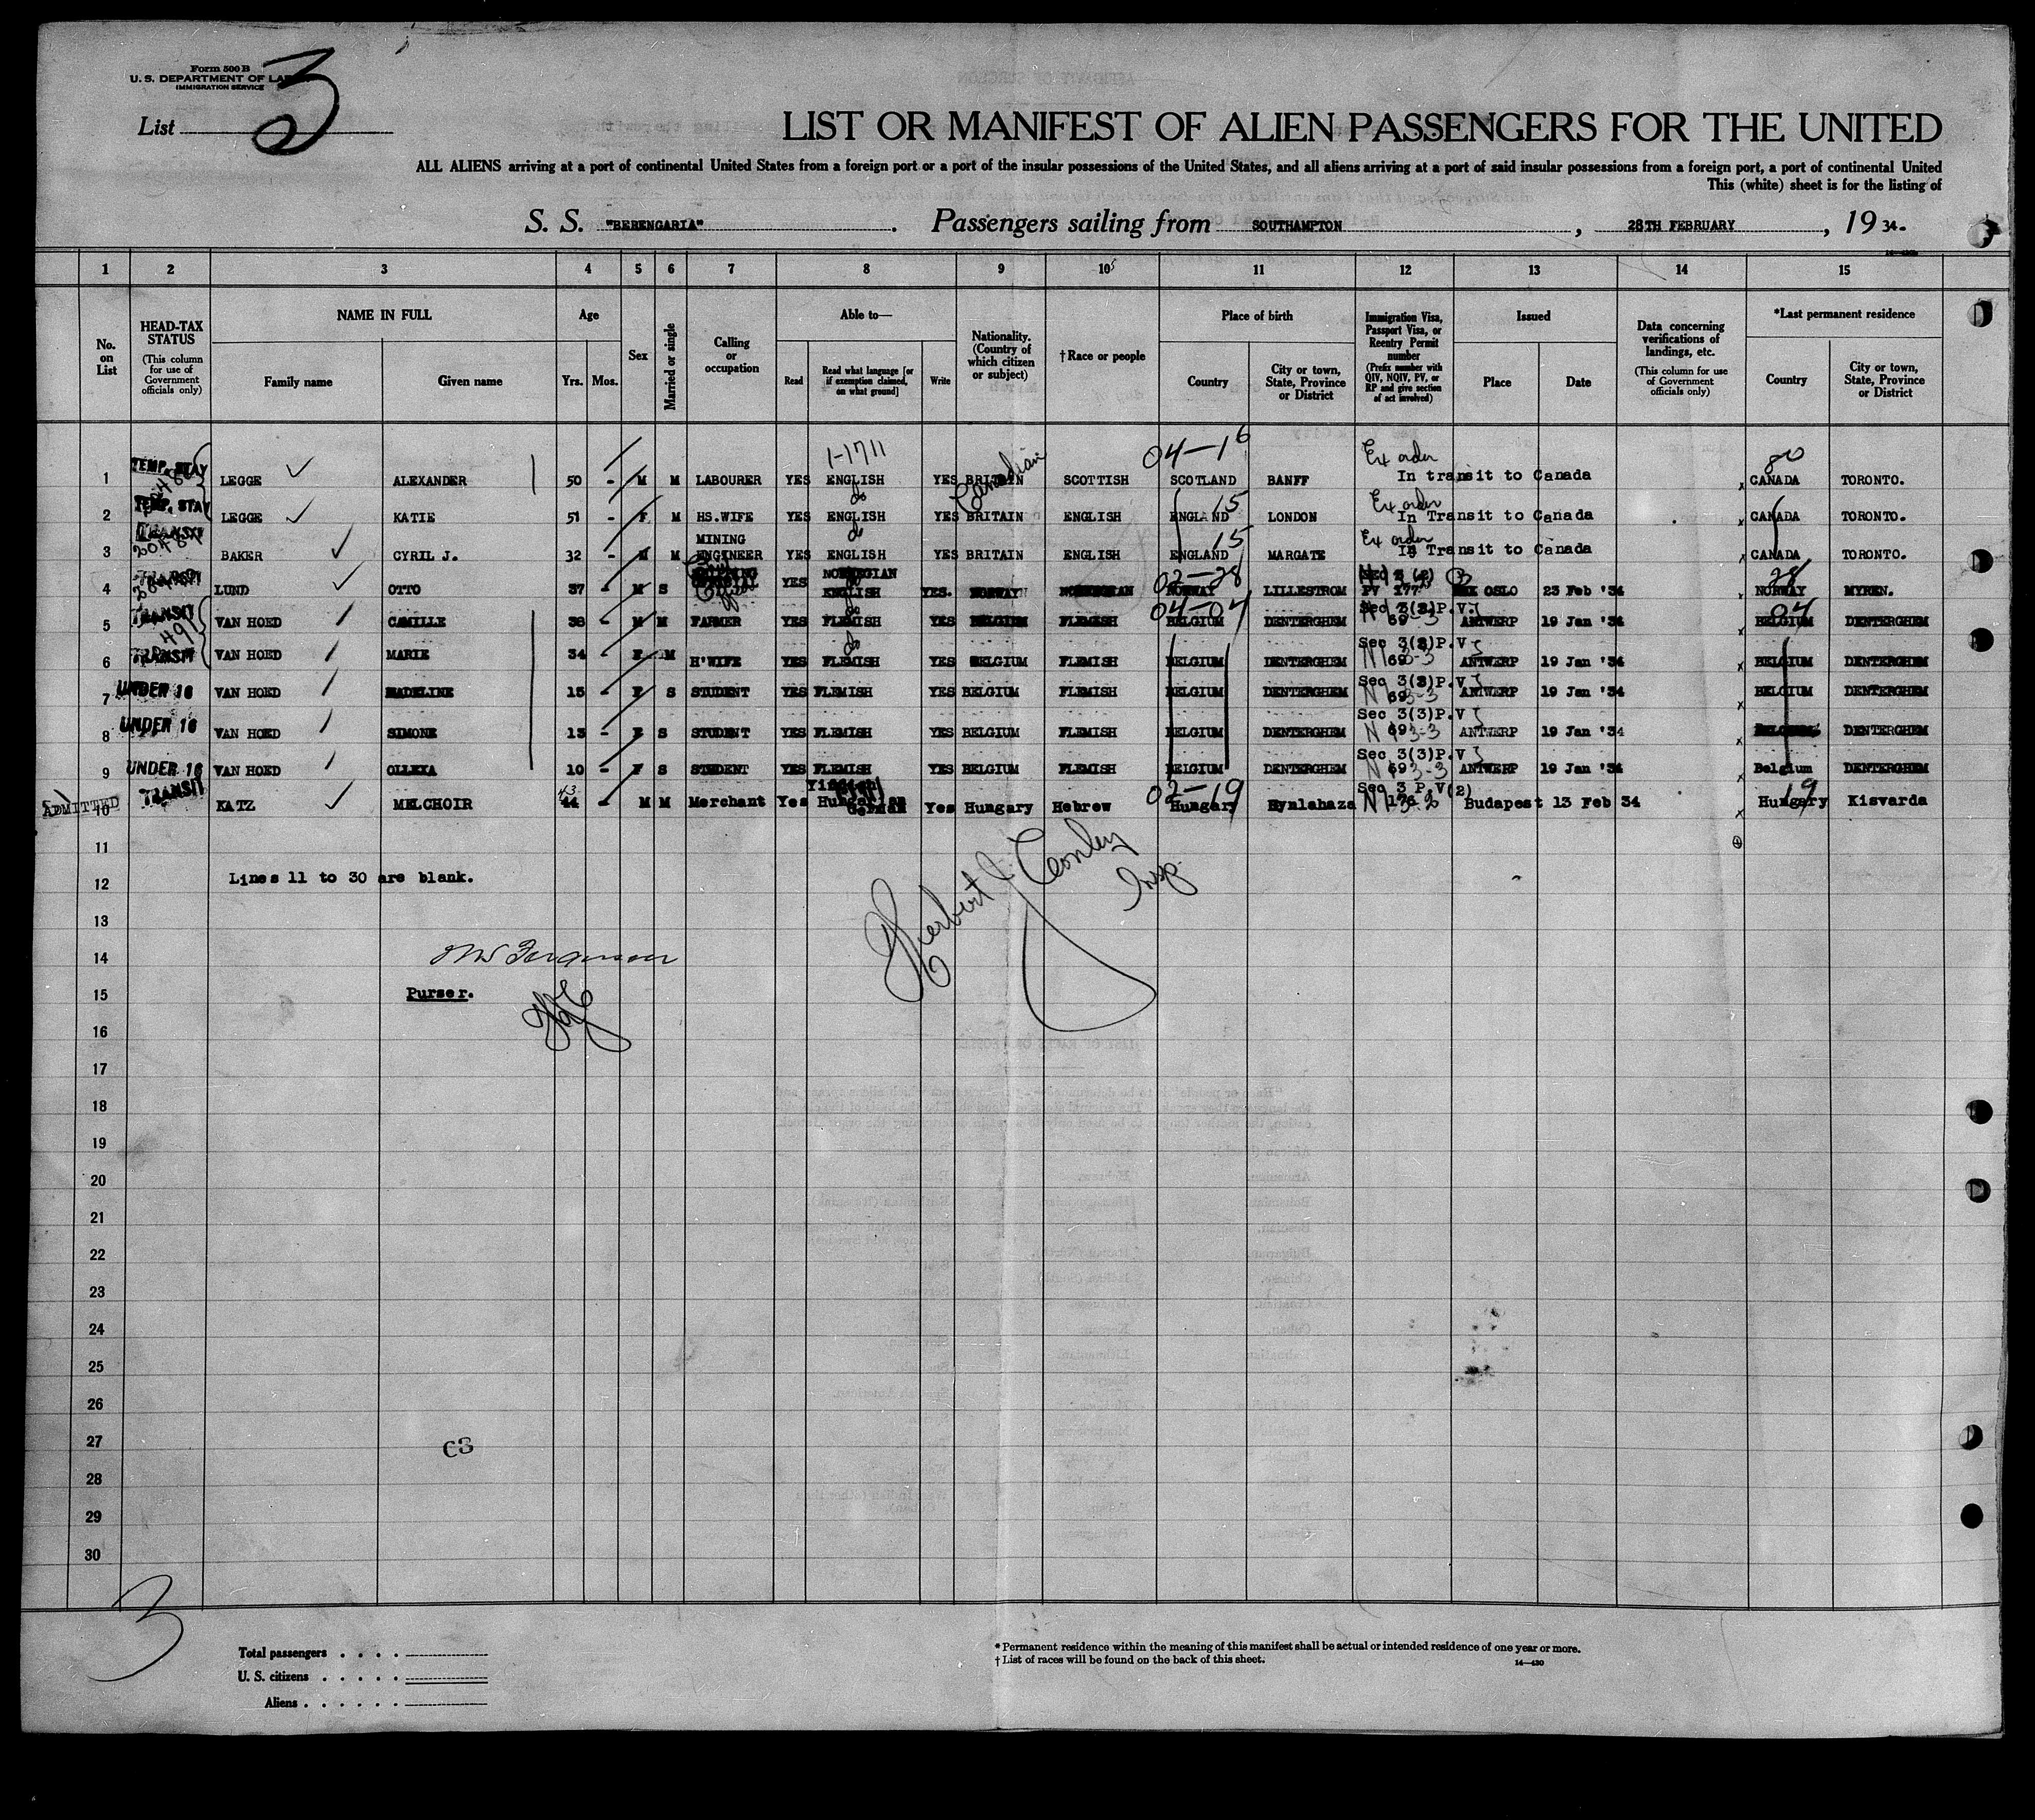 Form 500 B
U. S. DEPARTMENT OF LABOR
IMMIGRATION SERVICE
List 3
LIST OR MANIFEST OF ALIEN PASSENGERS FOR THE UNITED
ALL ALIENS arriving at a port of continental United States from a foreign port or a port of the insular possessions of the United States, and all aliens arriving at a port of said insular possessions from a foreign port, a port of continental United
This (white) sheet is for the listing of
S. S. "BERENGARIA". Passengers sailing from SOUTHAMPTON, 28TH FEBRUARY, 19 34.
1 2 3 4 5 6 7 8 9 10 11 12 13 14 15
No. on List
HEAD-TAX STATUS (This column for use of Government officials only)
NAME IN FULL Family name Given name
Age Yrs. Mos.
Sex
Married or single
Calling or occupation
Able to— Read Read what language [or if exemption claimed, on what ground] Write
Nationality. (Country of which citizen or subject)
†Race or people
Place of birth Country City or town, State, Province or District
Immigration Visa, Passport Visa, or Reentry Permit number (Prefix number with QIV, NQIV, PV, or RP and give section of act involved)
Issued Place Date
Data concerning verifications of landings, etc. (This column for use of Government officials only)
*Last permanent residence Country City or town, State, Province or District
1-1711 Canadian 04-16 Ex order 80
1 TEMP. STAY LEGGE ALEXANDER 50 - M M LABOURER YES ENGLISH YES BRITAIN SCOTTISH SCOTLAND BANFF In transit to Canada x CANADA TORONTO.
do 15 Ex order
2 TEMP. STAY LEGGE KATIE 51 - F M HS.WIFE YES ENGLISH YES BRITAIN ENGLISH ENGLAND LONDON In Transit to Canada x CANADA TORONTO.
do 15 Ex order
3 TRANSIT BAKER CYRIL J. 32 - M M MINING ENGINEER YES ENGLISH YES BRITAIN ENGLISH ENGLAND MARGATE In Transit to Canada x CANADA TORONTO.
02-28 28
4 TRANSIT LUND OTTO 37 - M S YES NORWEGIAN ENGLISH YES. NORWAY NORWEGIAN NORWAY LILLESTROM PV 177 OSLO 23 Feb '34 x NORWAY MYREN.
do 04-04 04
5 TRANSIT VAN HOED CAMILLE 38 - M M FARMER YES FLEMISH YES BELGIUM FLEMISH BELGIUM DENTERGHEM Sec 3(3)P.V. 69 ANTWERP 19 Jan '34 x BELGIUM DENTERGHEM
do
6 TRANSIT VAN HOED MARIE 34 - F M H'WIFE YES FLEMISH YES BELGIUM FLEMISH BELGIUM DENTERGHEM Sec 3(3)P.V 69 ANTWERP 19 Jan '34 x BELGIUM DENTERGHEM
7 UNDER 16 VAN HOED MADELINE 15 - F S STUDENT YES FLEMISH YES BELGIUM FLEMISH BELGIUM DENTERGHEM Sec 3(3)P.V 69 ANTWERP 19 Jan '34 x BELGIUM DENTERGHEM
8 UNDER 16 VAN HOED SIMONE 13 - F S STUDENT YES FLEMISH YES BELGIUM FLEMISH BELGIUM DENTERGHEM Sec 3(3)P.V 69 ANTWERP 19 Jan '34 x BELGIUM DENTERGHEM
9 UNDER 16 VAN HOED OLLEXA 10 - F S STUDENT YES FLEMISH YES BELGIUM FLEMISH BELGIUM DENTERGHEM Sec 3(3)P.V 69 ANTWERP 19 Jan '34 x Belgium DENTERGHEM
43 02-19 19
ADMITTED 10 TRANSIT KATZ MELCHOIR 44 - M M Merchant Yes Hungarian German Yes Hungary Hebrew Hungary Nyalahaza Sec 3 P.V(2) 176 Budapest 13 Feb 34 x Hungary Kisvarda
11
12 Lines 11 to 30 are blank.
Herbert J. Conley Insp.
13
14 Ferguson
15 Purser.
16
17
18
19
20
21
22
23
24
25
26
27 C3
28
29
30
3
Total passengers
U. S. citizens
Aliens
* Permanent residence within the meaning of this manifest shall be actual or intended residence of one year or more.
† List of races will be found on the back of this sheet.
14—430